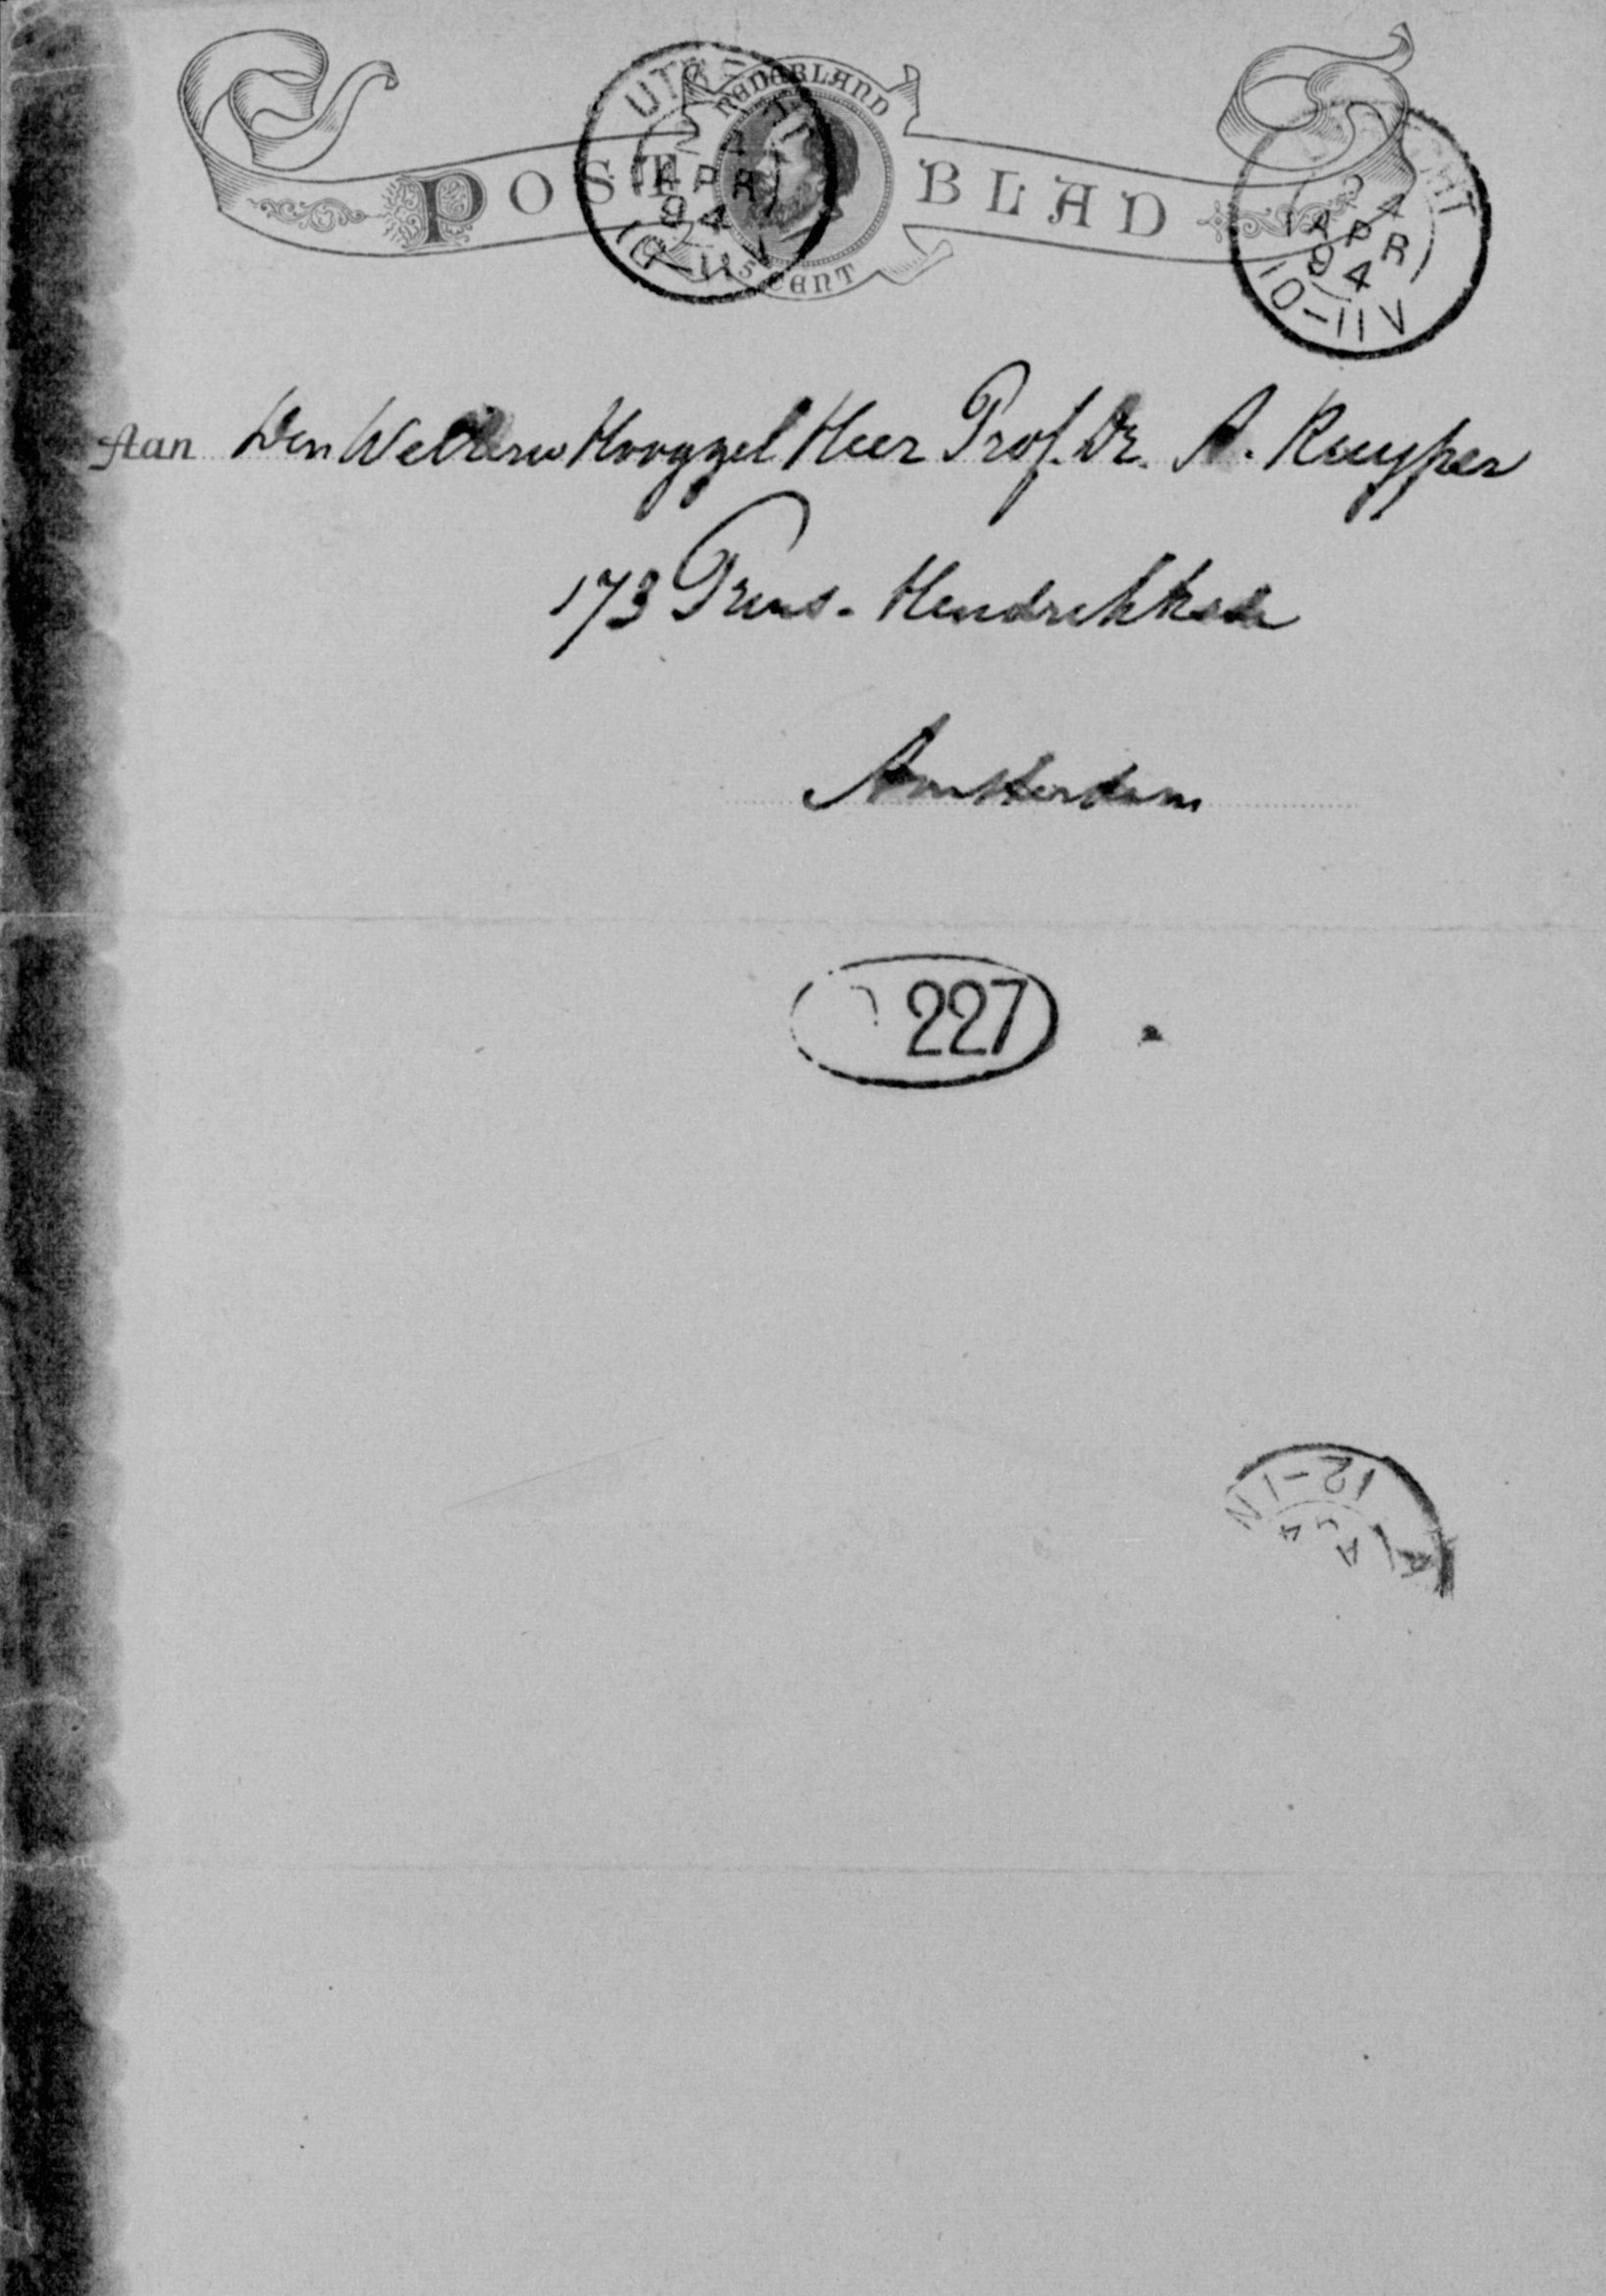 NEDERLAND
POST BLAD
5 CENT
24
APR
94
10-11 V
24
APR
94
10-11 V
Aan Den WelEerw Hooggel Heer Prof. Dr. A. Kuyper
173 Prins-Hendrikkade
Amsterdam
227
12-1 N